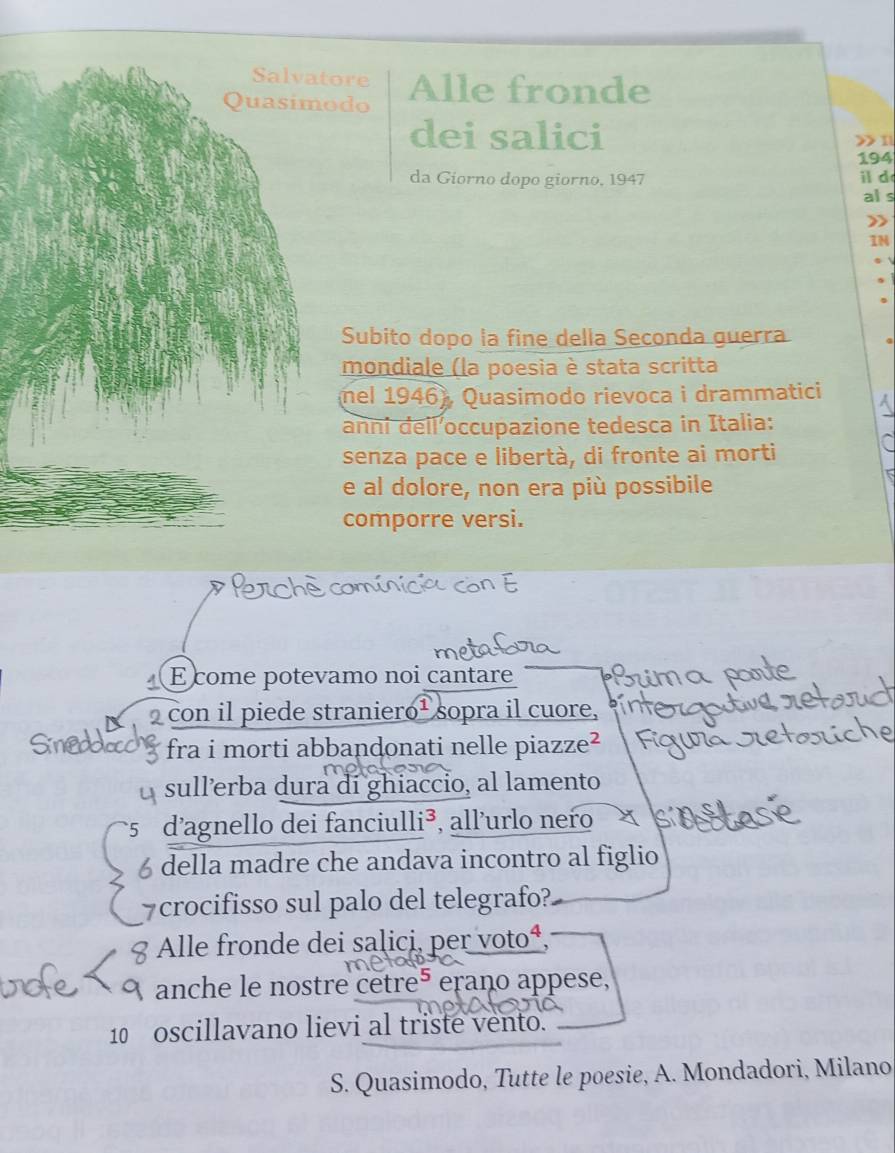 Salvatore
Quasimodo
Alle fronde
dei salici
da Giorno dopo giorno, 1947
194
il d
al s
IN
Subito dopo la fine della Seconda guerra
mondiale (la poesia è stata scritta
nel 1946), Quasimodo rievoca i drammatici
anni dell'occupazione tedesca in Italia:
senza pace e libertà, di fronte ai morti
e al dolore, non era più possibile
comporre versi.
Perchè cominicia con E
metafora
1 E come potevamo noi cantare
Prima parte
2 con il piede straniero¹ sopra il cuore,
intergative retoric
Sineddoche
3 fra i morti abbandonati nelle piazze²
Figura retoriche
metafora
4 sull'erba dura di ghiaccio, al lamento
5 d'agnello dei fanciulli³, all'urlo nero
sinestesie
6 della madre che andava incontro al figlio
7 crocifisso sul palo del telegrafo?
8 Alle fronde dei salici, per voto⁴,
metafora
9 anche le nostre cetre⁵ erano appese,
metafora
10 oscillavano lievi al triste vento.
S. Quasimodo, Tutte le poesie, A. Mondadori, Milano